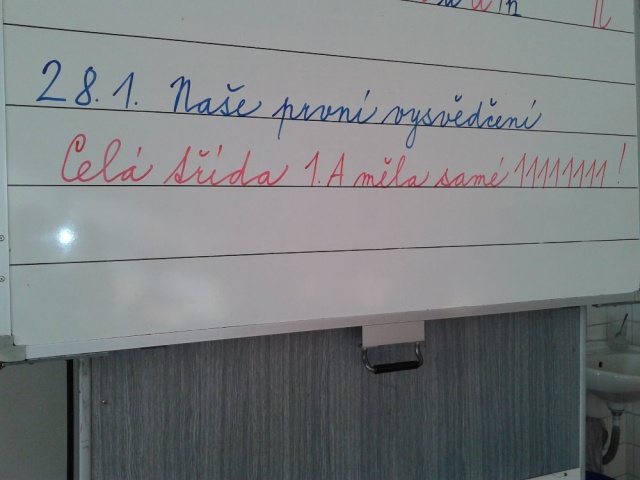 28.1. Naše první vysvědčení
Celá třída 1.A měla samé 11111111!